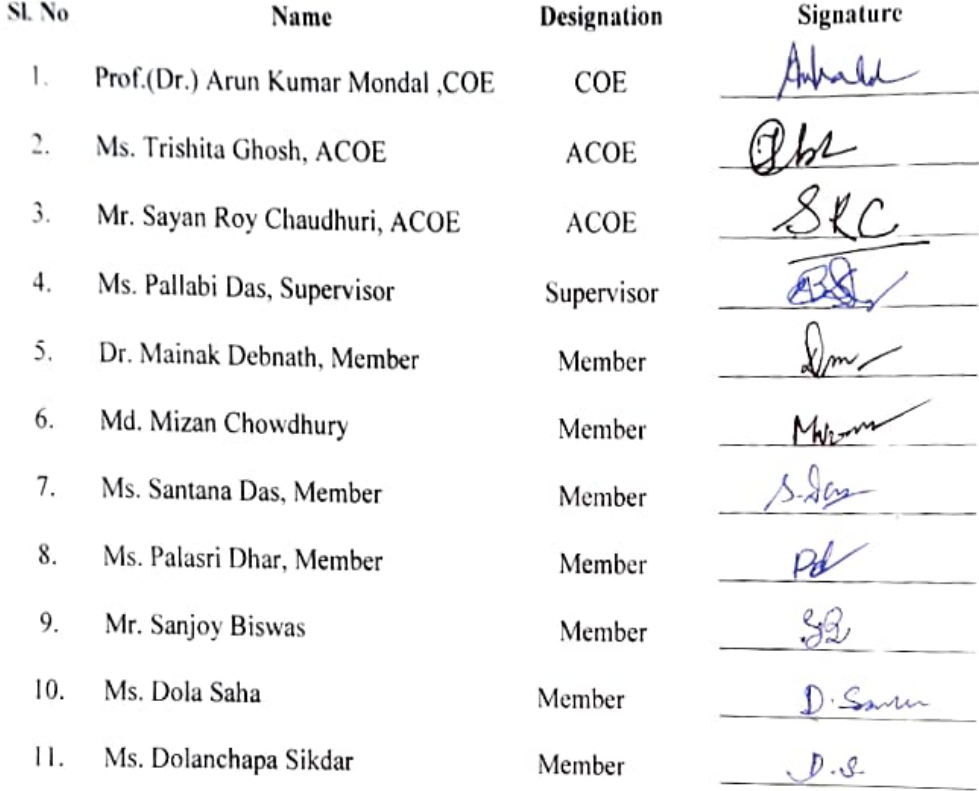 Sl. No Name Designation Signature
1. Prof.(Dr.) Arun Kumar Mondal ,COE COE
2. Ms. Trishita Ghosh, ACOE ACOE
3. Mr. Sayan Roy Chaudhuri, ACOE ACOE SRC
4. Ms. Pallabi Das, Supervisor Supervisor
5. Dr. Mainak Debnath, Member Member
6. Md. Mizan Chowdhury Member
7. Ms. Santana Das, Member Member S. Das
8. Ms. Palasri Dhar, Member Member Pd
9. Mr. Sanjoy Biswas Member
10. Ms. Dola Saha Member
11. Ms. Dolanchapa Sikdar Member D.S.